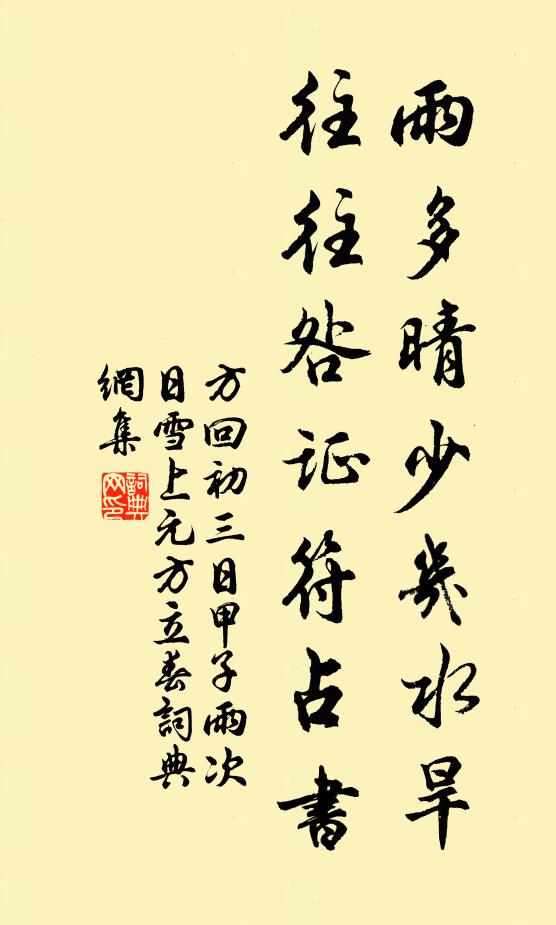 雨多晴少幾水旱
往往咎证符占書
方回初三日甲子雨次
日雪上元方立春詞典
網集
詞典網印